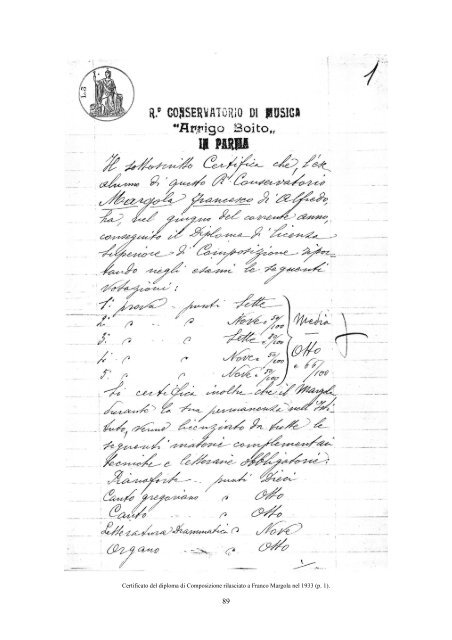 1
L.3
R.º CONSERVATORIO DI MUSICA
"Arrigo Boito„
IN PARMA
Il sottoscritto Certifica che, l'ex
alunno di questo Rº Conservatorio
Margola Francesco di Alfredo,
ha, nel giugno del corrente anno,
conseguito il Diploma di licenza
superiore di Composizione ripor-
tando negli esami le seguenti
votazioni:
1ª prova - punti Sette
2ª " " Nove e 50/100
3ª " " Sette e /100
4ª " " Nove e 50/100
5ª " " Nove e 50/100
Media
Otto
e 66/100
Si certifica inoltre che il Margola
durante la sua permanenza nell'Isti-
tuto, venne licenziato da tutte le
seguenti materie complementari
tecniche e letterarie obbligatorie:
Pianoforte punti Dieci
Canto gregoriano " Otto
Canto " Otto
Letteratura Drammatica " Nove
Organo " Otto
Certificato del diploma di Composizione rilasciato a Franco Margola nel 1933 (p. 1).
89